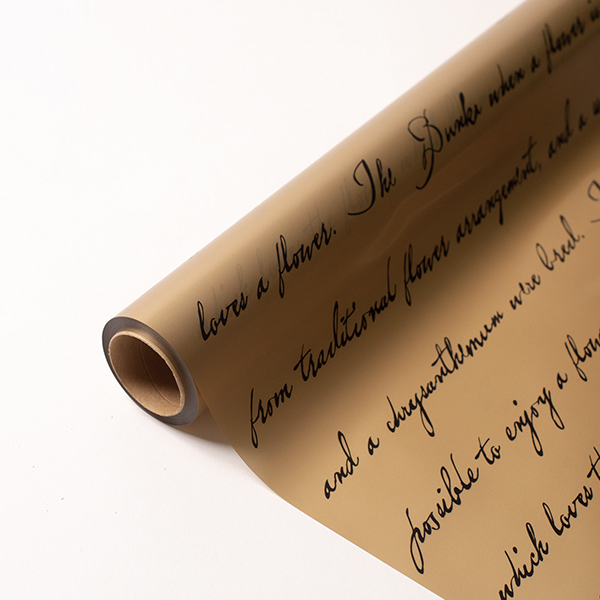 loves a flower. The Bunka when a flower
from traditional flower arrangement, and a
and a chrysanthemum were bred.
possible to enjoy a
which loves